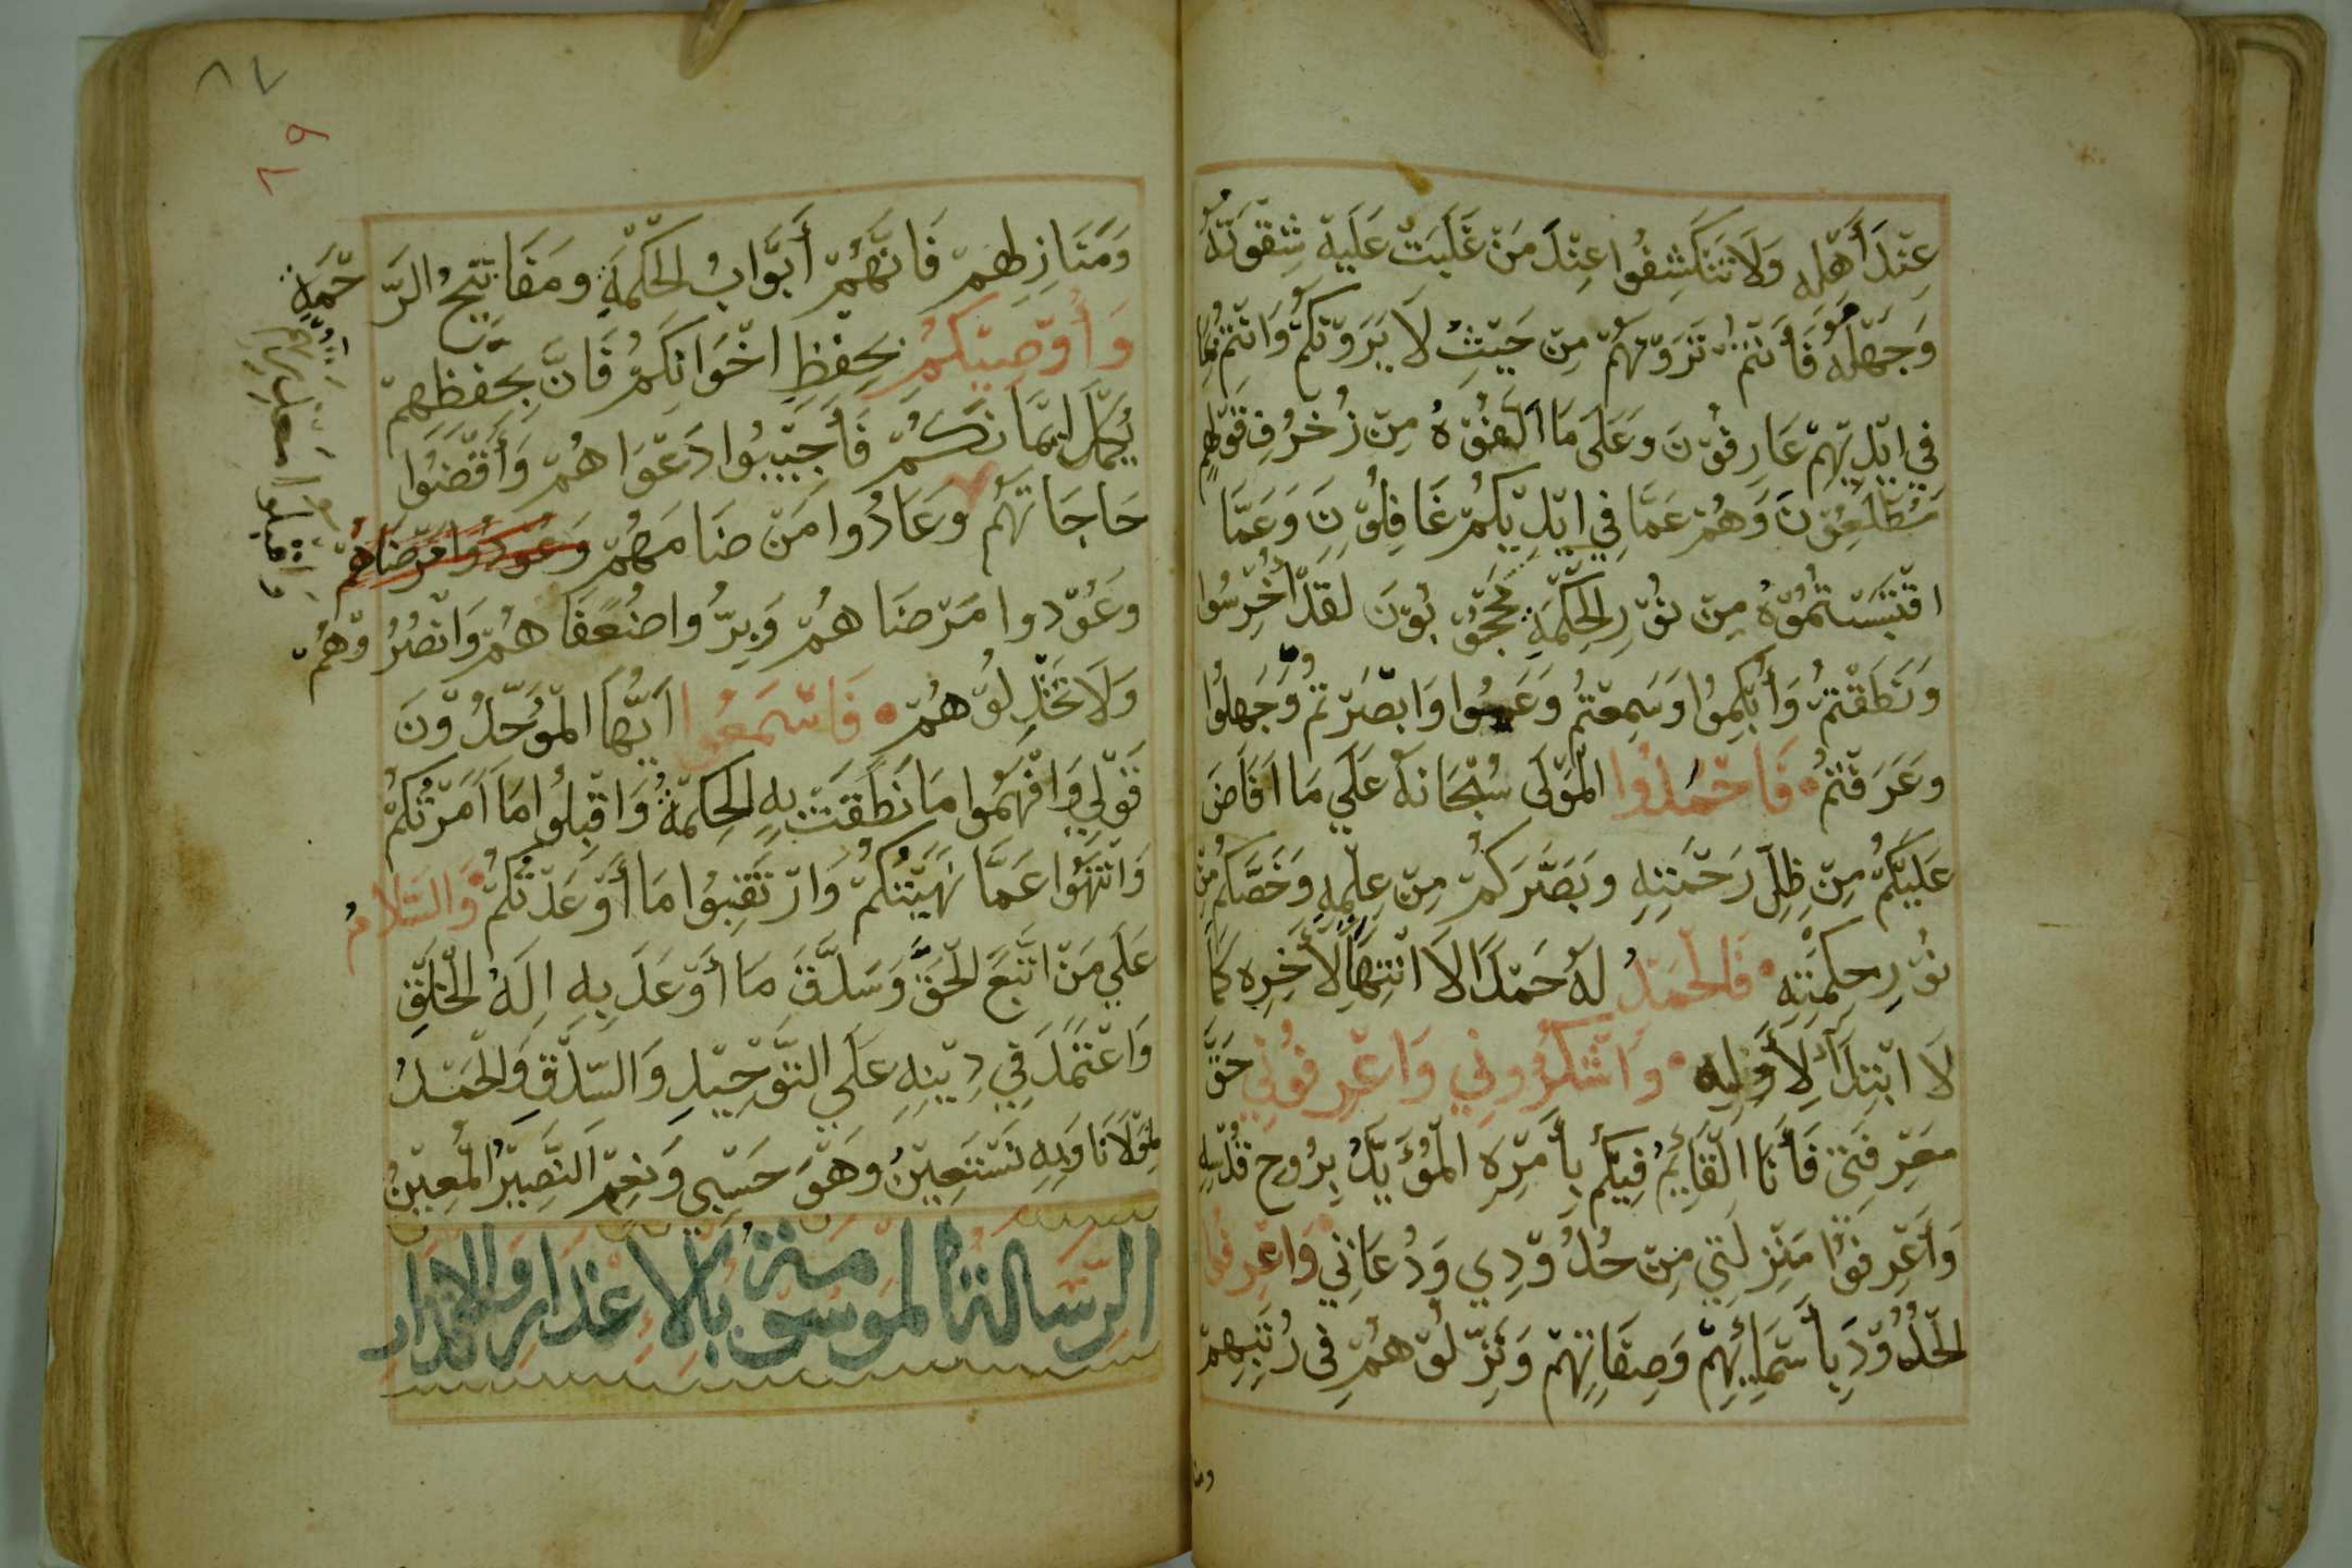 عِنْدَ أَهْلِهِ وَلَا تَنْكَشِفُوا عِنْدَ مَنْ غَلَبَتْ عَلَيْهِ شِقْوَتُهُ
وَجَهْلُهُ فَأَنْتُمْ تَرَوْنَهُمْ مِنْ حَيْثُ لَا يَرَوْنَكُمْ وَأَنْتُمْ بِمَا
فِي ايْدِيْهِمْ عَارِفُوْنَ وَعَلَى مَا أَلَّفُوْهُ مِنْ زُخْرُفِ قَوْلِهِمْ
مُطَّلِعُوْنَ وَهُمْ عَمَّا فِي ايْدِيْكُمْ غَافِلُوْنَ وَعَمَّا
اقْتَبَسْتُمُوْهُ مِنْ نُوْرِ الْحِكْمَةِ مَحْجُوْبُوْنَ لَقَدْ أُخْرِسُوا
وَنَطَقْتُمْ وَأُبْكِمُوا وَسَمِعْتُمْ وَعَمُوا وَابْصَرْتُمْ وَجَهِلُوا
وَعَرَفْتُمْ فَاحْمَدُوا الْمَوْلَى سُبْحَانَهُ عَلَي مَا افَاضَ
عَلَيْكُمْ مِنْ ظِلِّ رَحْمَتِهِ وَبَصَّرَكُمْ مِنْ عِلْمِهِ وَخَصَّكُمْ مِنْ
نُوْرِ حِكْمَتِهِ فَالْحَمْدُ لَهُ حَمْدًا لَا انْتِهَا لِأَخِرِهِ كَمَا
لَا ابْتِدَأَ لِأَوَّلِهِ وَاشْكُرُونِي وَاعْرِفُوْنِي حَقَّ
مَعْرِفَتِي فَأَنَا الْقَائِمُ فِيْكُمْ بِأَمْرِهِ الْمُؤَيَّدُ بِرُوحِ قُدْسِهِ
وَأَعْرِفُوْا مَنْزِلَتِي مِنْ حُدُوْدِي وَدُعَاتِي وَاعْرِفُوا
الْحُدُوْدَ بِأَسْمَائِهِمْ وَصِفَاتِهِمْ وَنَزِّلُوْهُمْ فِي رُتَبِهِمْ
٨٧
٦٩
وَمَنَازِلِهِمْ فَانَّهُمْ أَبْوَابُ الْحِكْمَةِ وَمَفَاتِيْحُ الرَّحْمَةِ
وَأُوْصِيْكُمْ بِحِفْظِ اخْوَانِكُمْ فَانَّ بِحِفْظِهِمْ
يَكْمُلُ ايْمَانُكُمْ فَأَجِيْبُوا دَعْوَاهُمْ وَأَقْضُوا
حَاجَاتَهُمْ وَعَادُوا مَنْ ضَامَهُمْ وَعُوْدُوا مَرْضَاهُمْ
وَعُوْدوا مَرْضَاهُمْ وَبِرُّوا ضُعَفَاهُمْ وَانْصُرُوْهُمْ
وَلَا تَخْذِلُوْهُمْ فَاسْمَعُوا ايُّهَا الْمُوَحِّدُوْنَ
قَوْلِي وَافْهَمُوا مَا نَطَقَتْ بِهِ الْحِكْمَةُ وَاقْبِلُوا مَا امَرْتُكُمْ
وَانْتَهُوا عَمَّا نَهَيْتُكُمْ وَارْتَقِبُوا مَا أَوْعَدْتُكُمْ وَالسَّلَامُ
عَلَي مَنْ اتَّبَعَ الْحَقَّ وَسَدَّقَ مَا أَوْعَدَ بِهِ الَهُ الْخَلْقِ
وَاعْتَمَدَ فِي دِيْنِهِ عَلَي التَّوْحِيْدِ وَالسِّدْقِ وَالْحَمْدُ
لِمَوْلَانَا وَبِهِ نَسْتَعِيْنُ وَهْوَ حَسْبِي وَنِعْمَ النَّصِيْرُ الْمُعِيْنُ
الرِّسَالَةُ الْمَوْسُوْمَةُ بِالْاعْذَارِ وَالْانْذَارِ